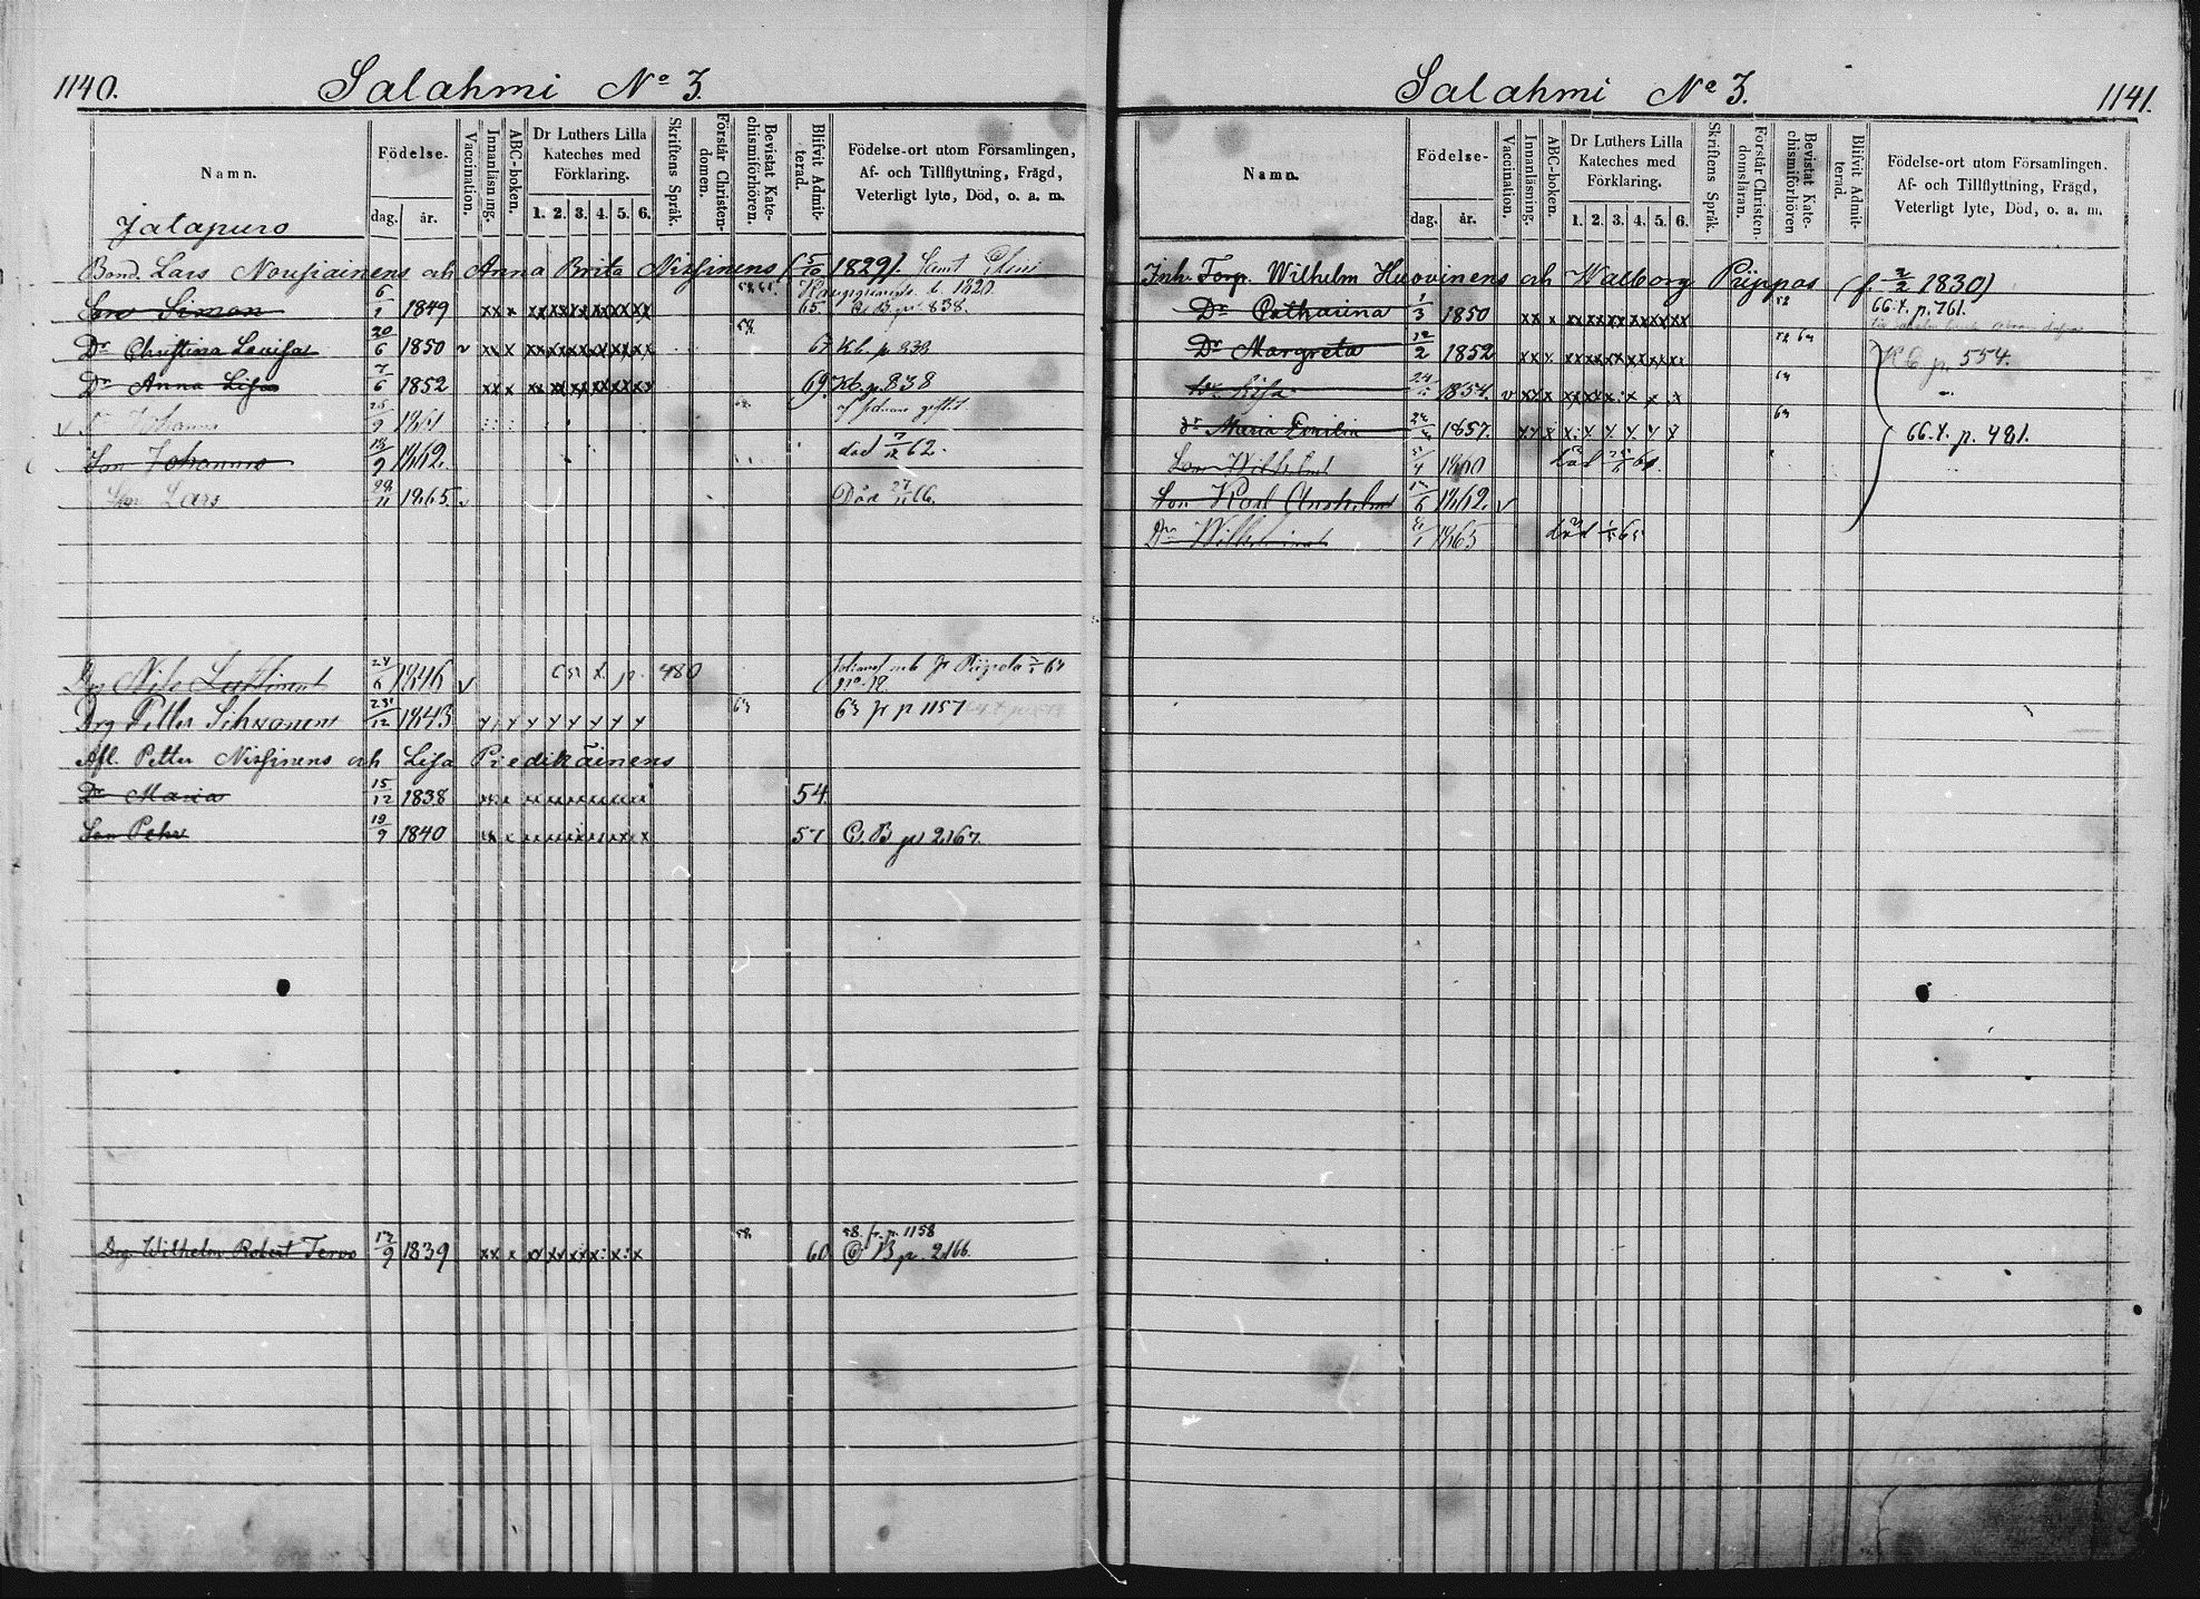 1140.
Salahmi No 3.
Namn.
Födelse-
dag.
år.
Vaccination.
Innanläsning.
ABC-boken.
Dr Luthers Lilla
Kateches med
Förklaring.
1. 2. 3. 4. 5. 6.
Skriftens Språk.
Förstår Christen-
domen.
Bevistat Kate-
chismiförhören.
Blifvit Admit-
terad.
Födelse-ort utom Församlingen,
Af- och Tillflyttning, Frägd,
Veterligt lyte, Död, o. a. m.
Jalapuro
Bond. Lars Nousiainens och Anna Brita Nissinens (5/10 1829). Samt
Son Simon 6/1 1849 xx x xx xx xx xx xx xx 65. C. B. p. 838.
Dr Christina Lovisa 20/6 1850 v xx x xx xx xx xx xx xx 58 67 Kb. p. 838
Dr Anna Lisa 7/6 1852 xx x xx xx xx xx xx xx 69. Kb. p. 838
Johanna 9 1861
Son Johannes 18/9 1862. död 7/12 62.
Son Lars 29/11 1865. v Död 27/11 66.
Drg Nils 24/6 1846 v p. 480
Drg Petter Sihvonen 23/12 1843 x x x x x x x x 63 63 fr p 1157
Afl. Petter Nissinens och Lisa Piedikäinens
Dr Maria 15/12 1838 xx x xx xx xx xx xx xx 54.
Son Pehr 19/9 1840 xx x xx xx xx xx xx xx 57 C. B p 2167.
Drg Wilhelm Robert Tervo 12/9 1839 xx x xx xx xx x: x: x 58 60 58. fr. p. 1158
C. B p. 2166.
Salahmi No 3.
1141.
Namn.
Födelse-
dag.
år.
Vaccination.
Innanläsning.
ABC-boken.
Dr Luthers Lilla
Kateches med
Förklaring.
1. 2. 3. 4. 5. 6.
Skriftens Språk.
Förstår Christen-
domsläran.
Bevistat Kate-
chismiförhören
Blifvit Admit-
terad.
Födelse-ort utom Församlingen.
Af- och Tillflyttning, Frägd,
Veterligt lyte, Död, o. a. m.
Inh. Torp. Wilhelm Huovinens och Walborg Piippos (f. 2/2 1830)
Dr Catharina 1/3 1850 xx x xx xx xx xx xx xx 66. X. p. 761.
Dr Margreta 12/2 1852 xx x xx xx xx xx xx xx K. B. p. 554.
Dr Lisa 1854. v xx x xx xx x: x x x 63
Dr Maria Emilia 1857. xx x x: x x x x x 63 66. X. p. 481.
Son Wilhelm 5/4 1860 död
Son Karl Anshelm 1862. v
Dr Wilhelmina 1865 död